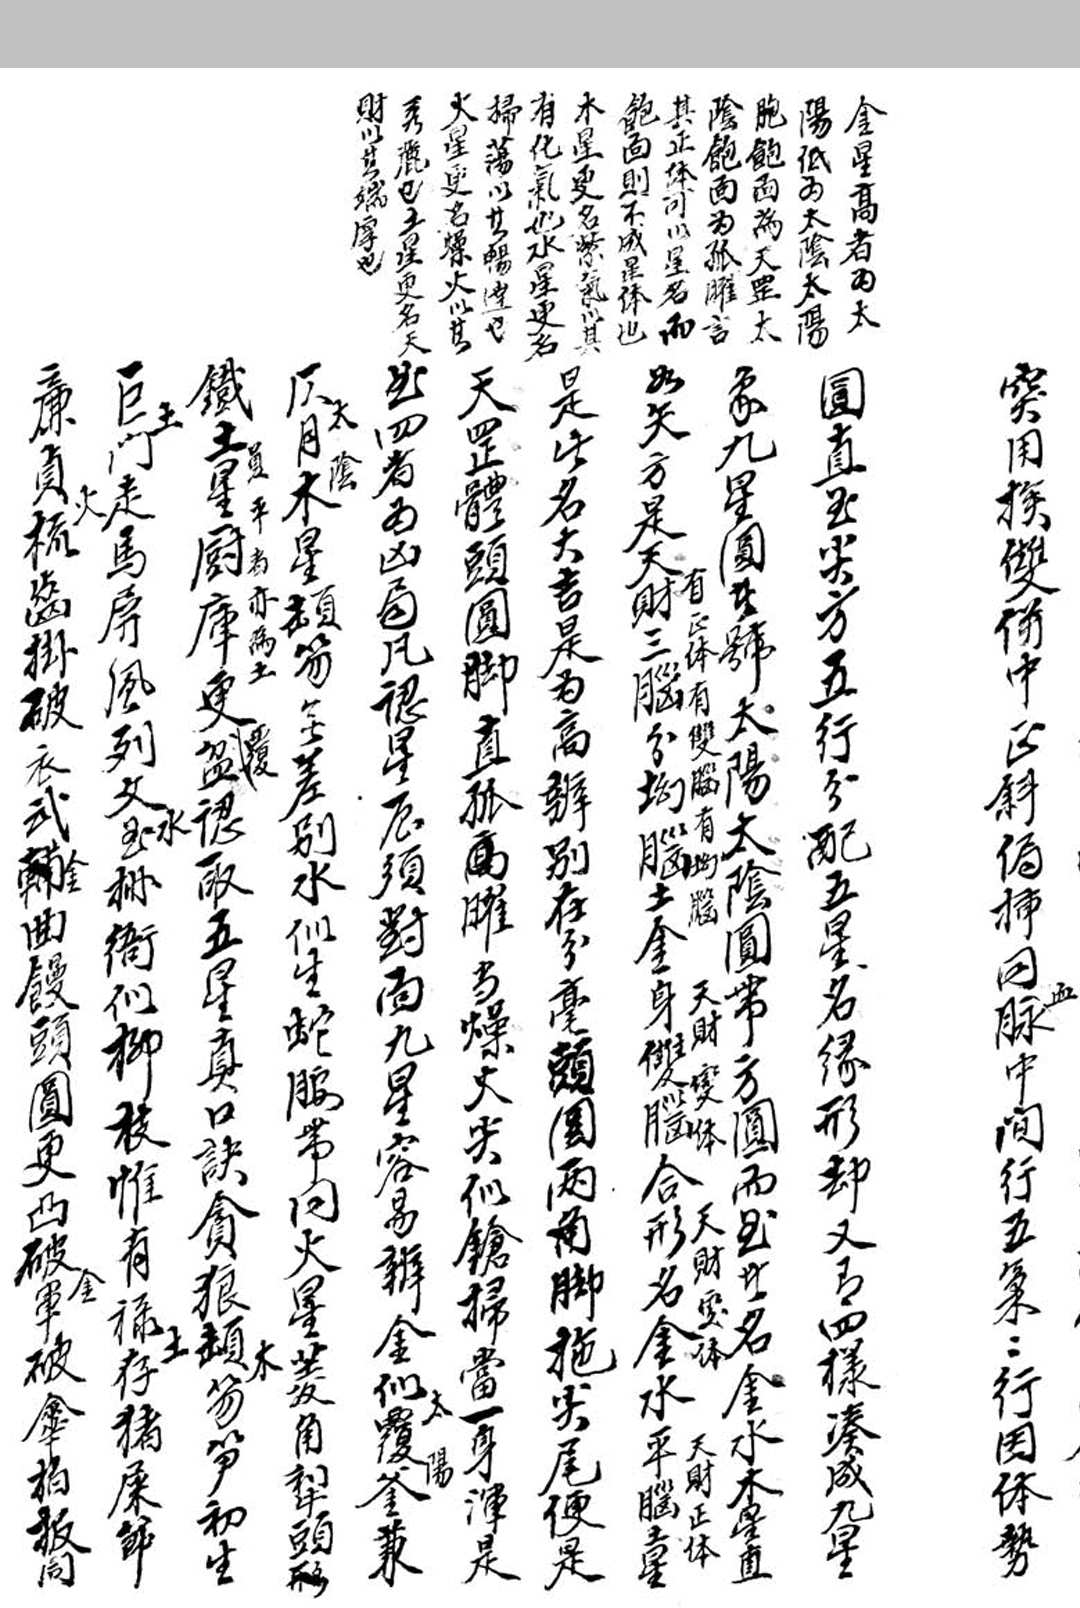 金星高者為太
陽低為太陰太陽
胞飽面為天罡太
陰飽面為孤曜言
其正体可以星名而
飽面則不成星体也
木星更名紫氣以其
有化氣也水星更名
掃蕩以其暢達也
火星更名燥火以其
秀麗也土星更名天
財以其端厚也
突用挨雙併中正斜偏揷同脉中間行五氣二行因体勢
血
圓直曲尖方五行分配五星名緣形却又有四樣凑成九星
象九星圓者號太陽太陰圓帶方圓而曲者名金水木星直
如矢方是天財三腦分坳腦土金身雙腦合形名金水平腦土星
有正体有雙腦有坳腦
天財變体
天財變体
天財正体
是此名大吉是為高辨别在分毫頭圓两角脚拖尖尾便是
天罡體頭圓脚直孤高曜当燥火尖似鎗掃當一身渾是
曲四者為凶曷凡認星辰須對面九星容易辨金似覆釜兼
太陽
仄月木星頓笏無差别水似生蛇腦帶同火星芒角犁頭形
太陰
鐵土星厨庫更盆認取五星真口訣貪狼頓笏笋初生
員平者亦為土
覆
木
巨門走馬屏風列文曲柳衙似柳枝惟有祿存猪屎節
土
水
土
廉貞梳齒掛破衣武輔曲饅頭圓更凸破軍破傘拍板同
火
金
金